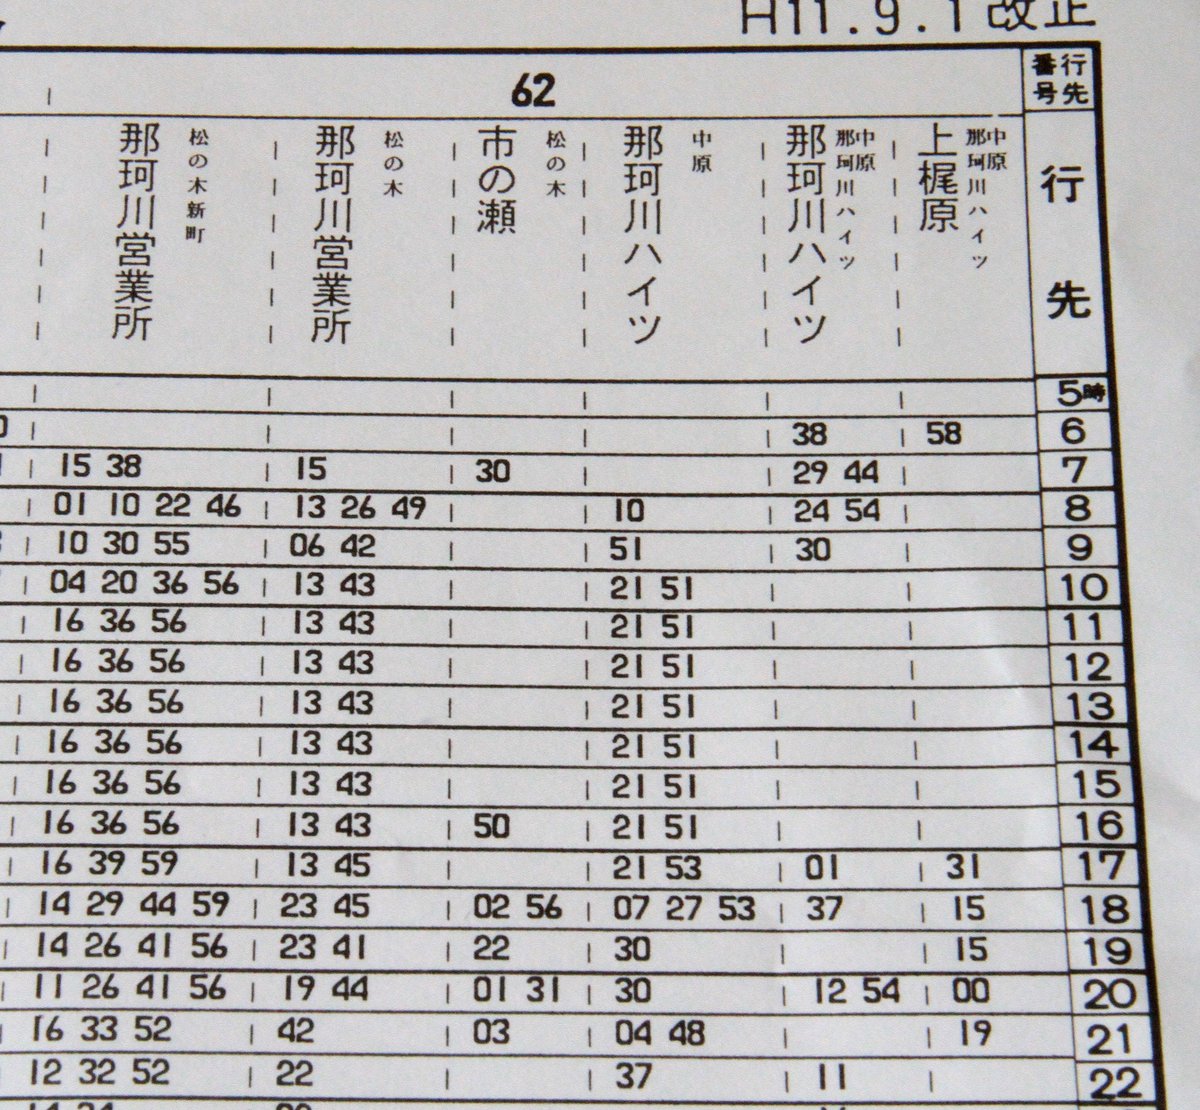 H11.9.1改正
62 行先番号
那珂川営業所 松の木新町 那珂川営業所 松の木 市の瀬 松の木 那珂川ハイツ 中原 那珂川ハイツ 中原 那珂川ハイツ 上梶原 中原 那珂川ハイツ 行先
5時
38 58 6
15 38 15 30 29 44 7
01 10 22 46 13 26 49 10 24 54 8
10 30 55 06 42 51 30 9
04 20 36 56 13 43 21 51 10
16 36 56 13 43 21 51 11
16 36 56 13 43 21 51 12
16 36 56 13 43 21 51 13
16 36 56 13 43 21 51 14
16 36 56 13 43 21 51 15
16 36 56 13 43 50 21 51 16
16 39 59 13 45 21 53 01 31 17
14 29 44 59 23 45 02 56 07 27 53 37 15 18
14 26 41 56 23 41 22 30 15 19
11 26 41 56 19 44 01 31 30 12 54 00 20
16 33 52 42 03 04 48 19 21
12 32 52 22 37 11 22